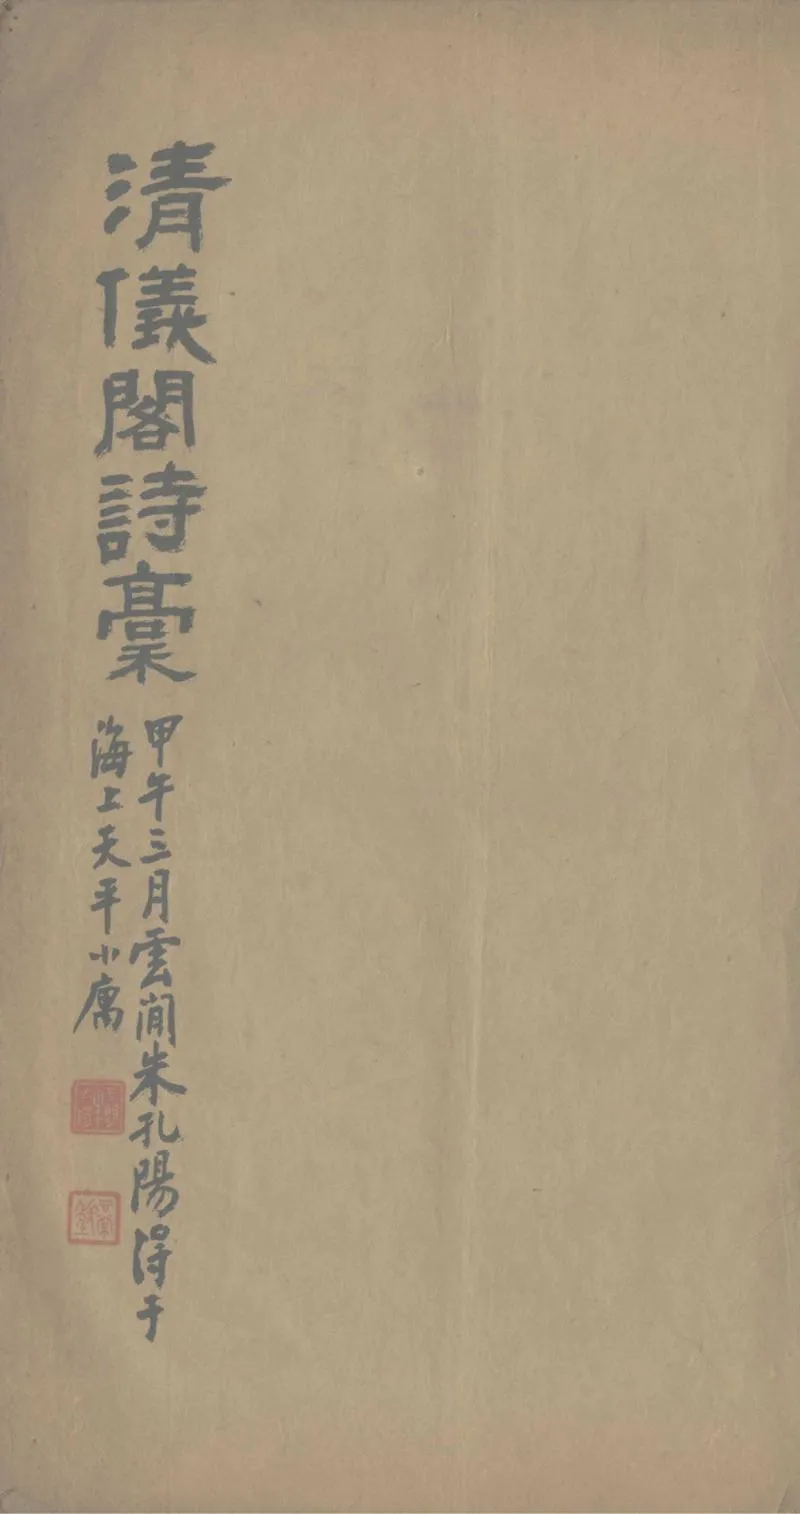 清儀閣詩稾
甲午三月雲閒朱孔陽得于
海上天平小廎